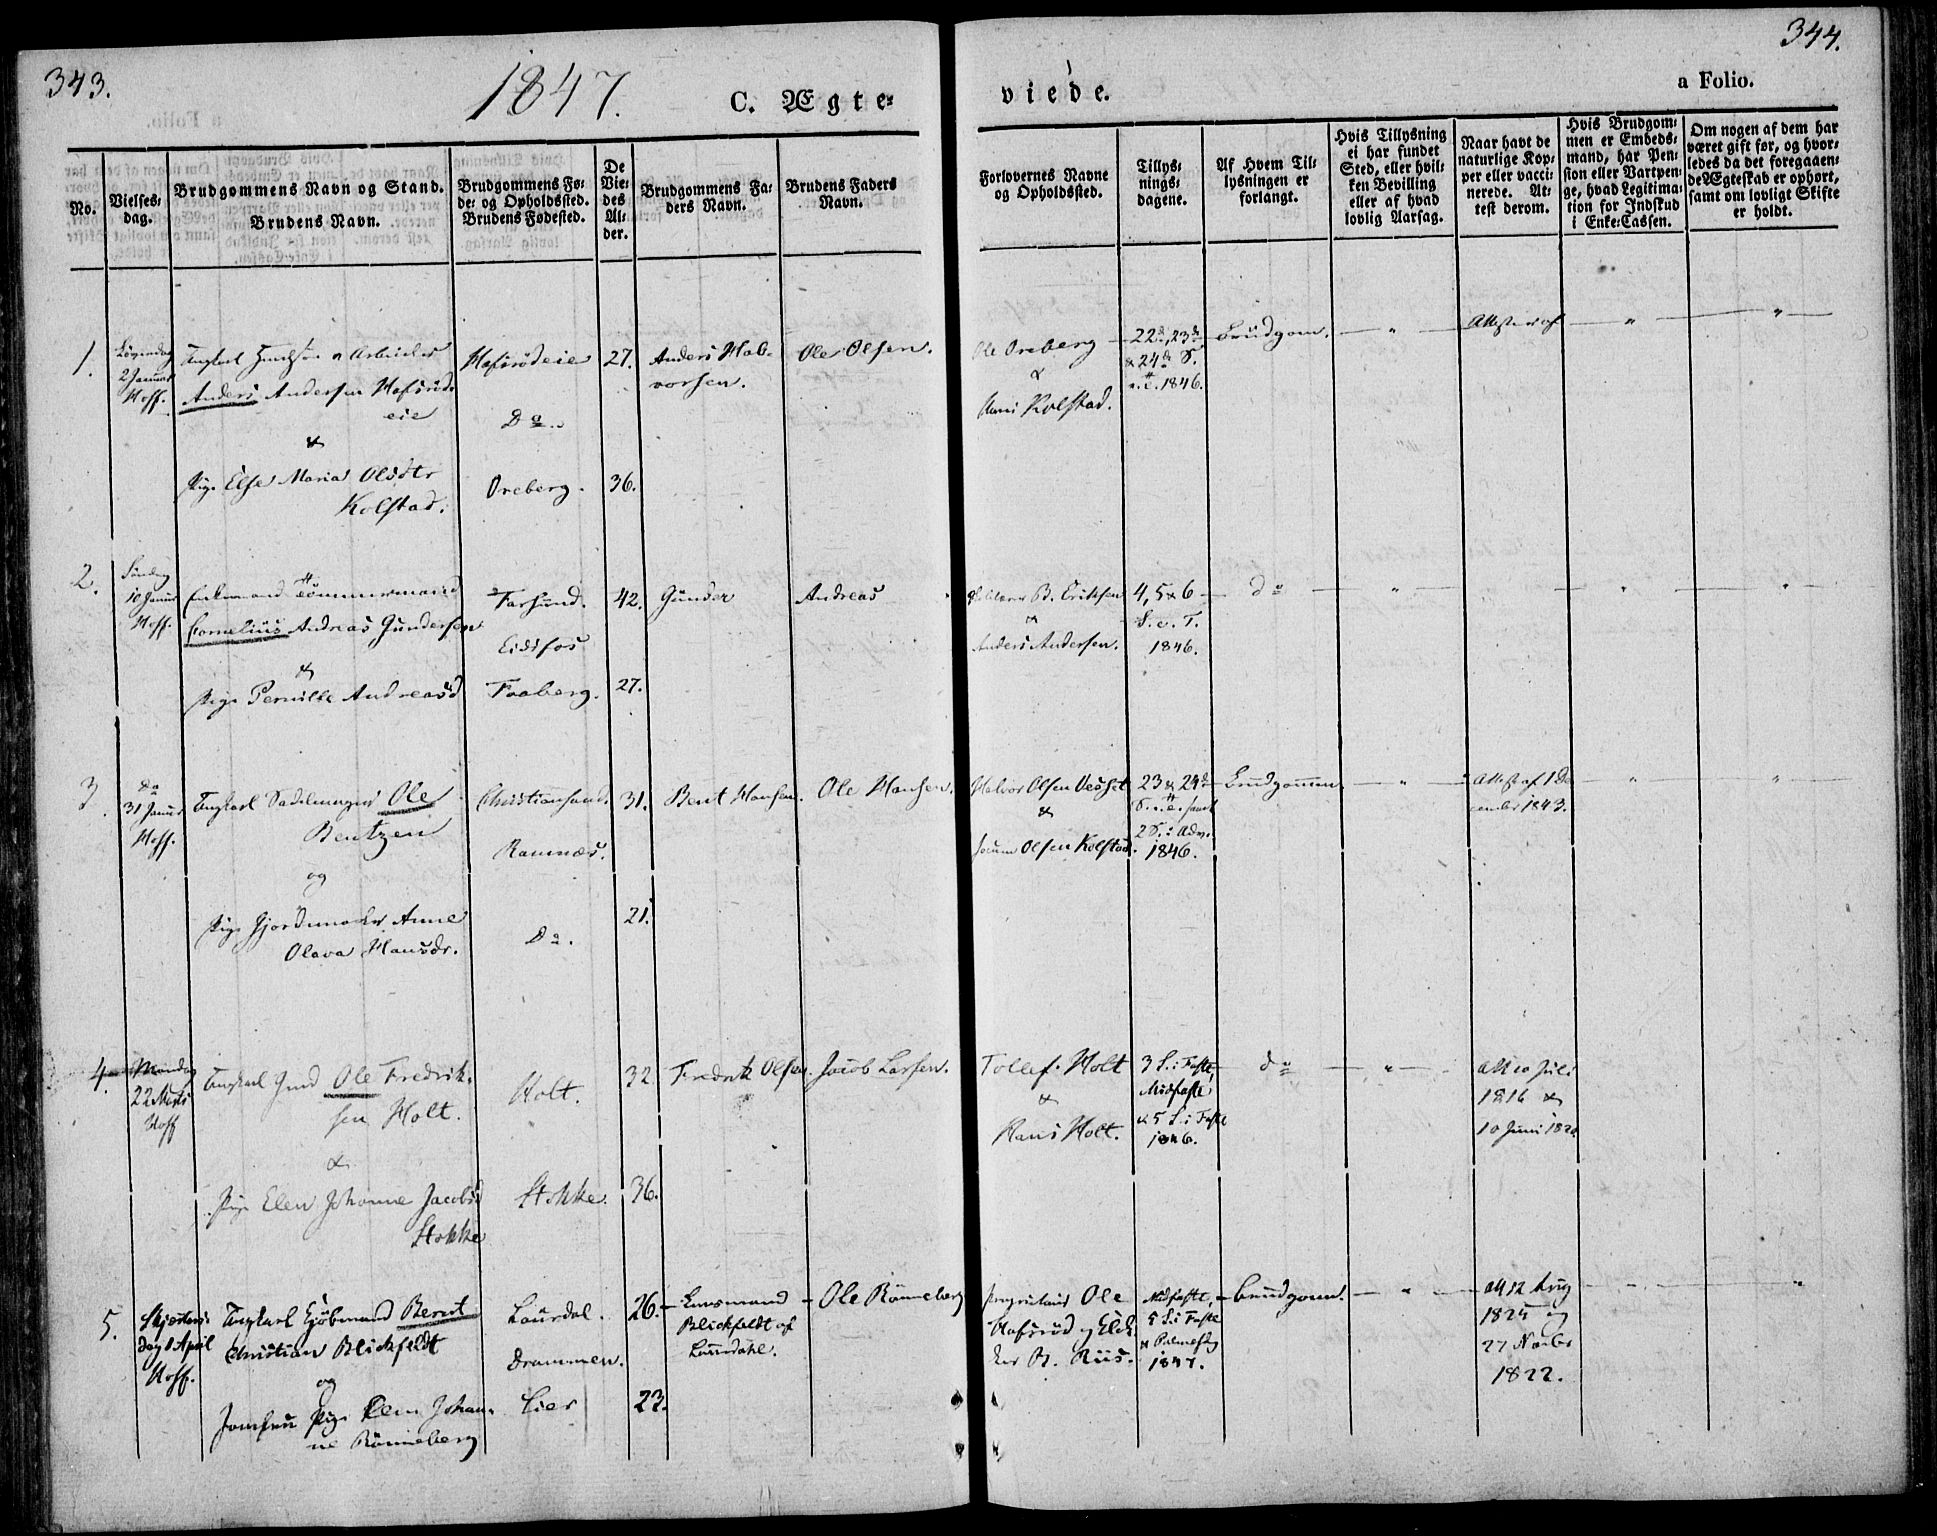 343.
1847.
C. Ægte=
viede.
a Folio.
344.
No.
Vielses=
dag.
Brudgommens Navn og Stand.
Brudens Navn.
Brudgommens Fø=
de= og Opholdssted.
Brudens Fødested.
De
Vie=
des
Al=
der.
Brudgommens Fa=
ders Navn.
Brudens Faders
Navn.
Forlovernes Navne
og Opholdssted.
Tillys=
nings=
dagene.
Af Hvem Til=
lysningen er
forlangt.
Hvis Tillysning
ei har fundet
Sted, eller hvil=
ken Bevilling
eller af hvad
lovlig Aarsag.
Naar havt de
naturlige Kop=
per eller vacci=
nerede. At=
test derom.
Hvis Brudgom=
men er Embeds=
mand, har Pen=
sion eller Vartpen=
ge, hvad Legitima=
tion for Indskud
i Enke=Cassen.
Om nogen af dem har
været gift før, og hvor=
ledes da det foregaaen=
de Ægteskab er ophørt,
samt om lovligt Skifte
er holdt.
1.
Løverdag
2 Januar
Hoff.
Ungkarl a Arbeider
Anders Andersen Hafsrøds
eie
&
Pige Else Maria Olsdtr
Kolstad.
Hafsrødeie
Do.
Oreberg.
27.
36.
Anders Hal-
vorsen.
Ole Olsen.
Ole Oreberg
&
Hans Kolstad.
22de, 23de
& 24de S.
e. T. 1846.
Brudgom.
"
"
"
2.
Søndag
10 Januar
Hoff.
Enkemand Tömmermand
Cornelius Andreas Gundersen
&
Pige Pernille Andreasd
Farsund.
Eidsfos
Faaberg.
42.
27.
Gunder
Andreas
B. Eriksen
&
Anders Andersen.
4, 5 & 6
S. e. T.
1846.
do
"
"
"
3
Do
31 Januar
Hoff.
Ungkarl Sadelmager Ole
Bentzen
og
Pige Gjordemoder Anne
Olava Hansdr.
Christiansand.
Ramnæs.
Do.
31.
21.
Bent Hansen.
Ole Hansen.
Halvor Olsen Vesset
&
Olsen Kolstad.
23 & 24de
S. e. T. samt
2 S. i Adv.
1846.
Brudgommen.
"
Attest af 1 De
cember 1843.
"
"
4.
Mandag
22 Marts
Hoff
Ungkarl Ole Fredrik-
sen Holt.
&
Pige Elen Johanne Jacobsd
Stokke
Holt.
Stokke.
32
36.
Fredrik Olsen
Jacob Larsen.
Tollef Holt
&
Hans Holt.
3 S. i Faste,
Midfaste
& 5 S. i Faste
1846.
do
"
att 10 Juli
1816 &
10 Juni 1820
5.
Skjærtors-
dag 1 April
Hoff.
Ungkarl Kjøbmand Bernt
Christian Blickfeldt
og
Jomfru Pige Elen Johan-
ne Rönneberg
Laurdal.
Drammen.
Lier
26.
23.
Lensmand
Blickfeldt af
Laurdahl.
Ole Rönneberg
Proprietair Ole
Hafsrød og
B. Riis.
Midfaste,
5 S. i Faste
& Palmesdg
1847.
Brudgomm.
"
att 12 Aug
1825 og
27 Novbr
1822.
"
"